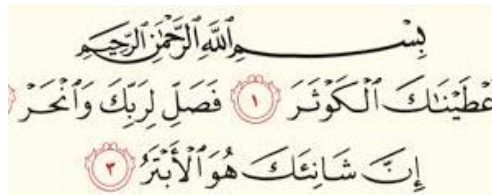 بِسْمِ ٱللَّهِ ٱلرَّحْمَٰنِ ٱلرَّحِيمِ
عْطَيْنَٰكَ ٱلْكَوْثَرَ ١ فَصَلِّ لِرَبِّكَ وَٱنْحَرْ
إِنَّ شَانِئَكَ هُوَ ٱلْأَبْتَرُ ٣